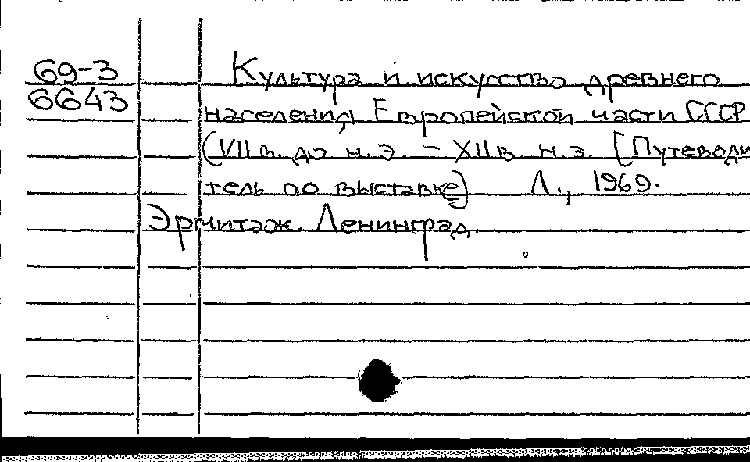 69-3 Культура и искусство древнего
6643 населения Европейской части СССР
(VII в. до н.э. – XII в. н.э. [Путеводи
тель по выставке) Л., 1969.
Эрмитаж. Ленинград